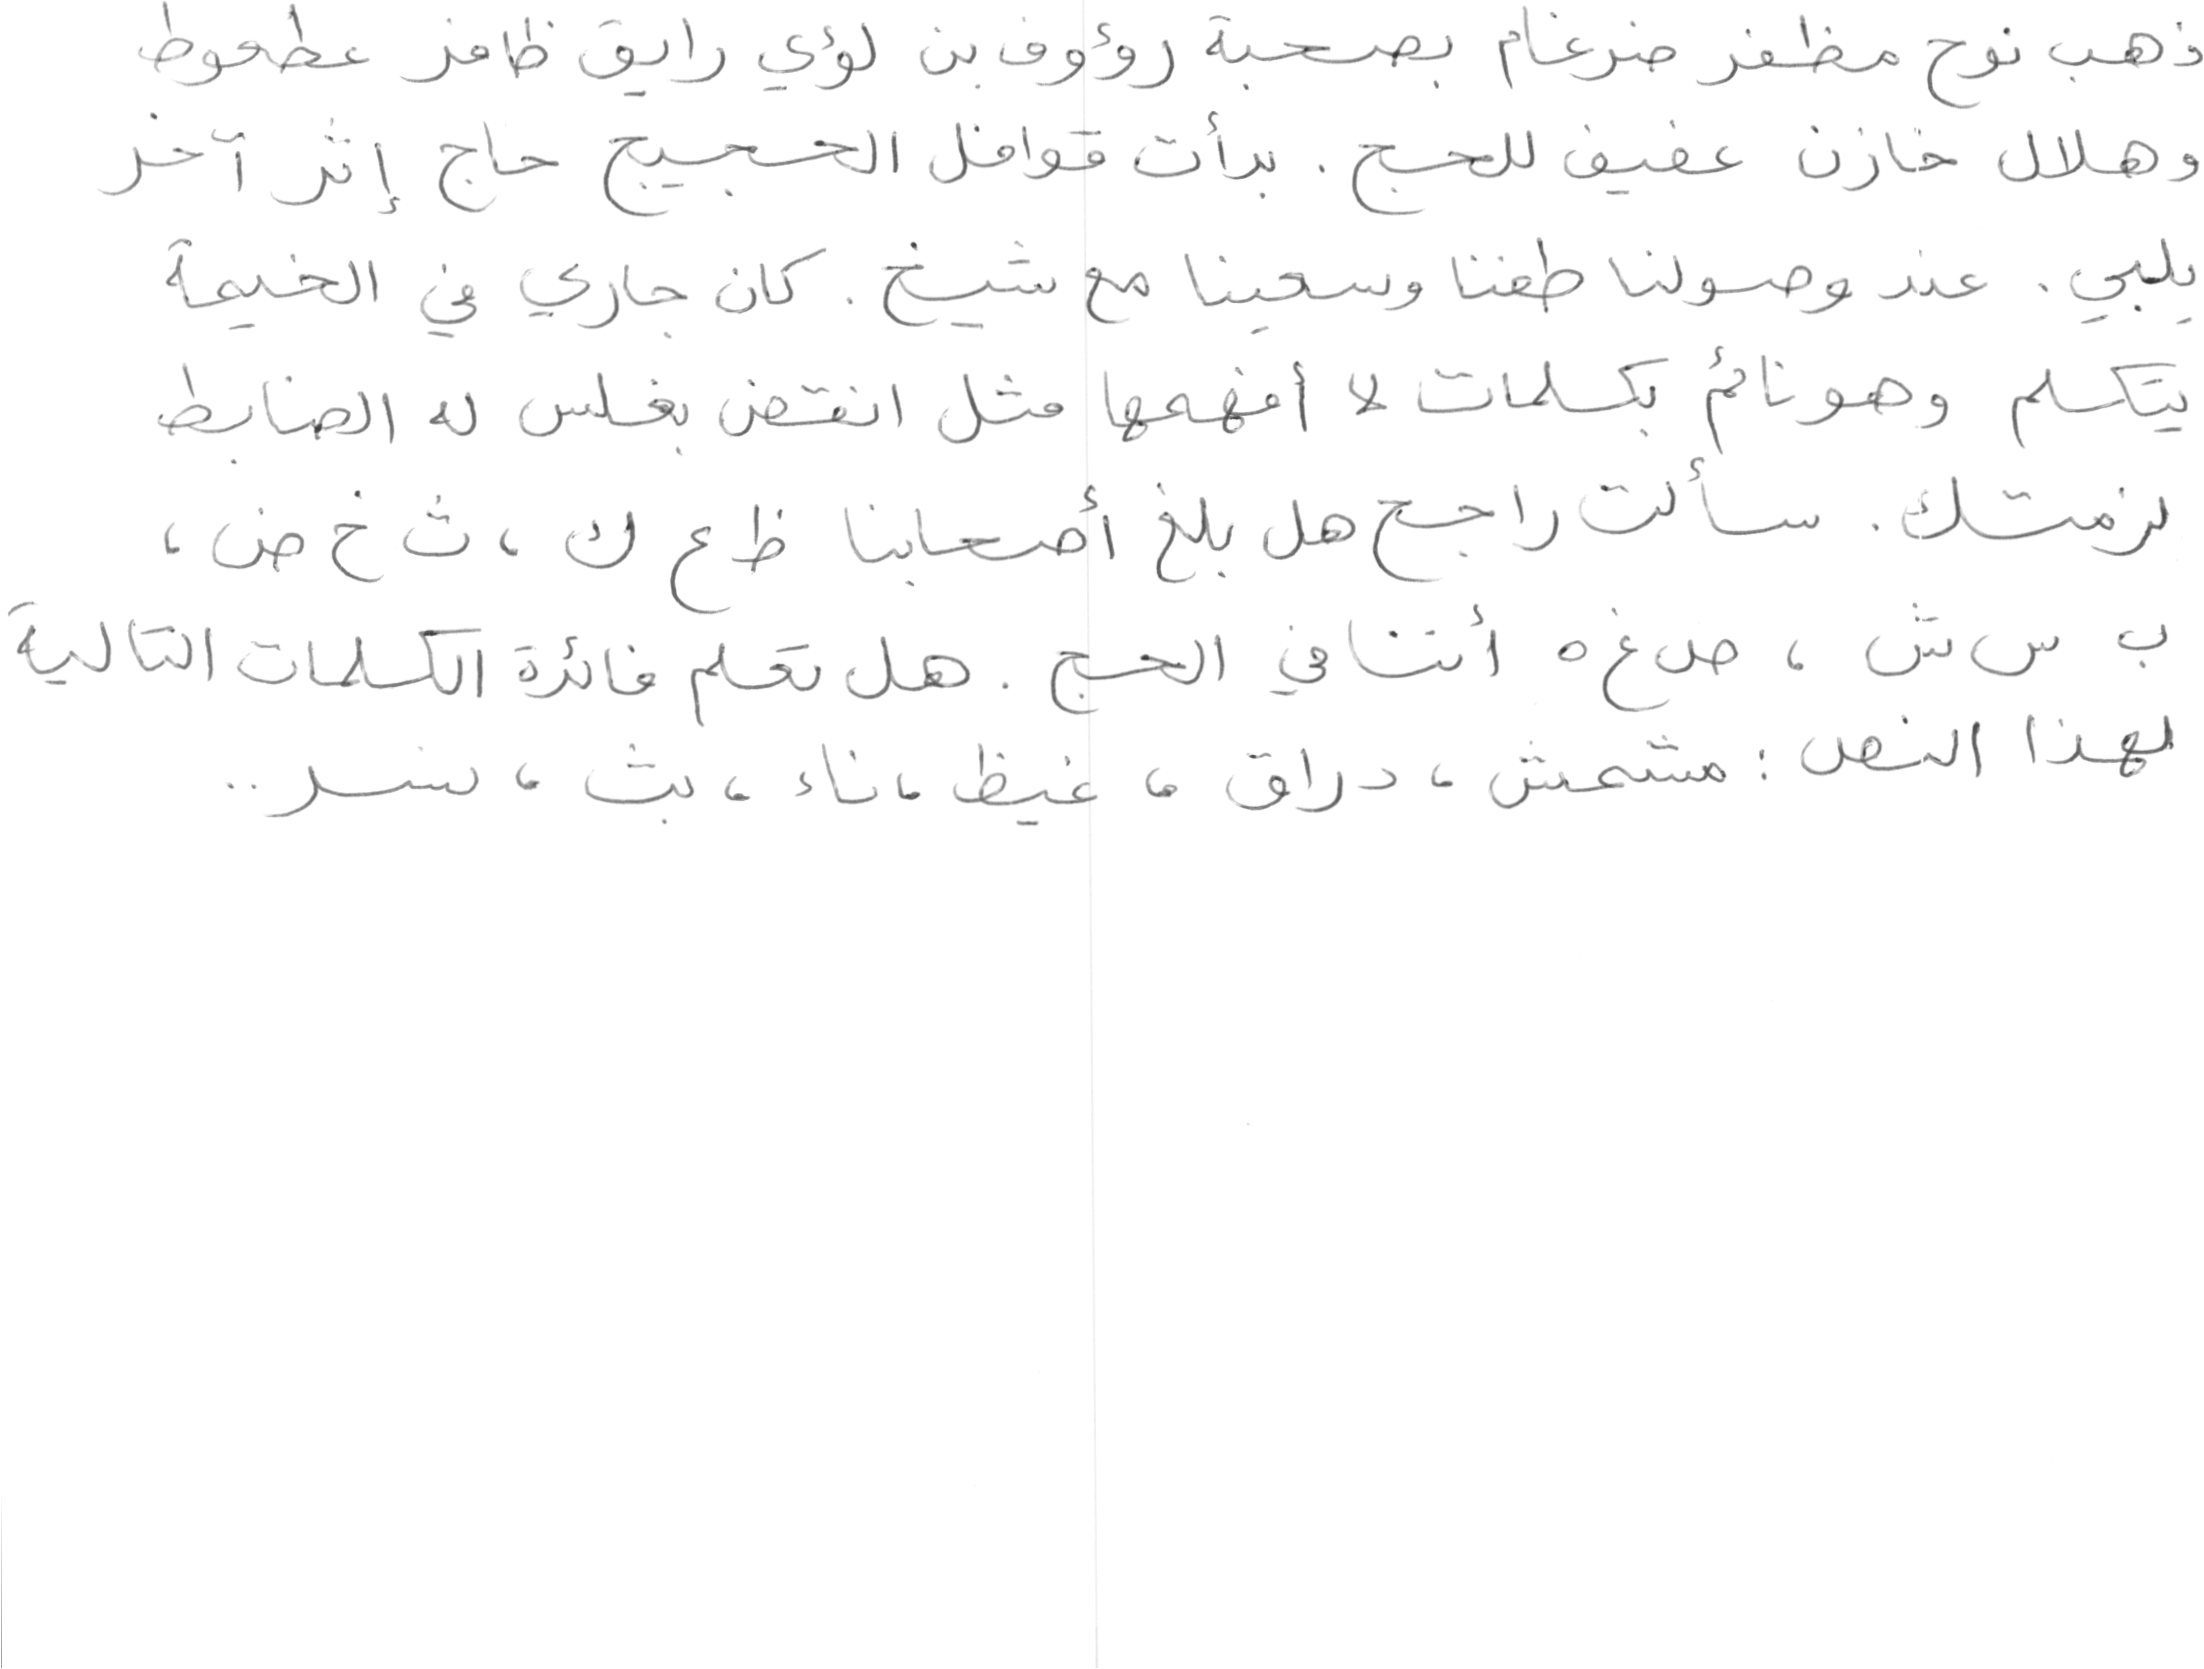 ذهب نوح مظفر ضرغام بصحبة رؤوف بن لؤي رايق ظافر عطعوط
وهلال خازن عفيف للحج . بدأت قوافل الحجيج حاج إثر آخر
يلبي . عند وصولنا طفنا وسعينا مع شيخ . كان جاري في الخيمة
يتكلم وهو نائم بكلمات لا أفهمها مثل انقض بغلس له الضابط
لزمتك . سألت راجح هل بلغ أصحابنا ظ ع ك ، ث خ ض ،
ب س ش ، ص غ ه أننا في الحج . هل تعلم فائزة الكلمات التالية
لهذا النص : مشمش ، دراق ، غيظ ، ناء ، بث ، نسر ..